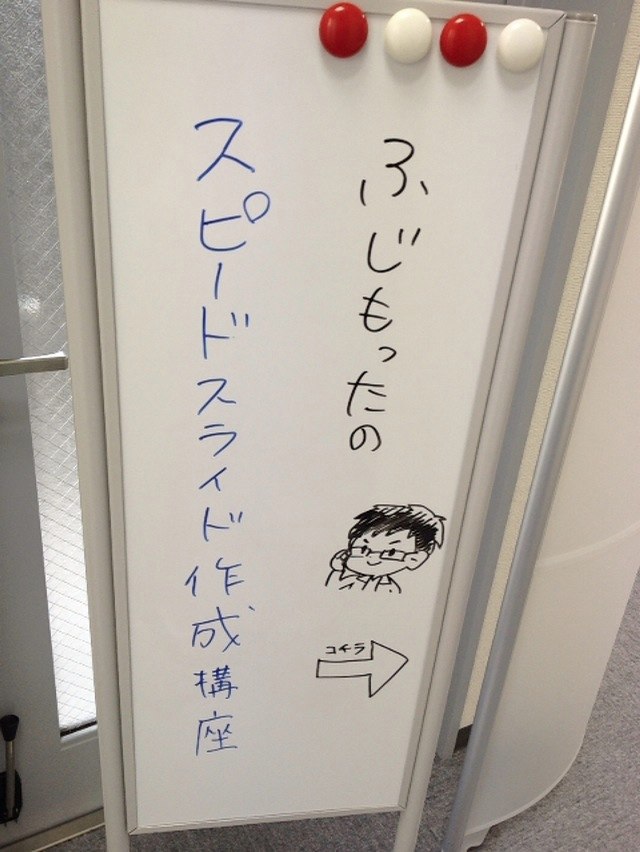 ふじもったの
スピードスライド作成講座
コチラ